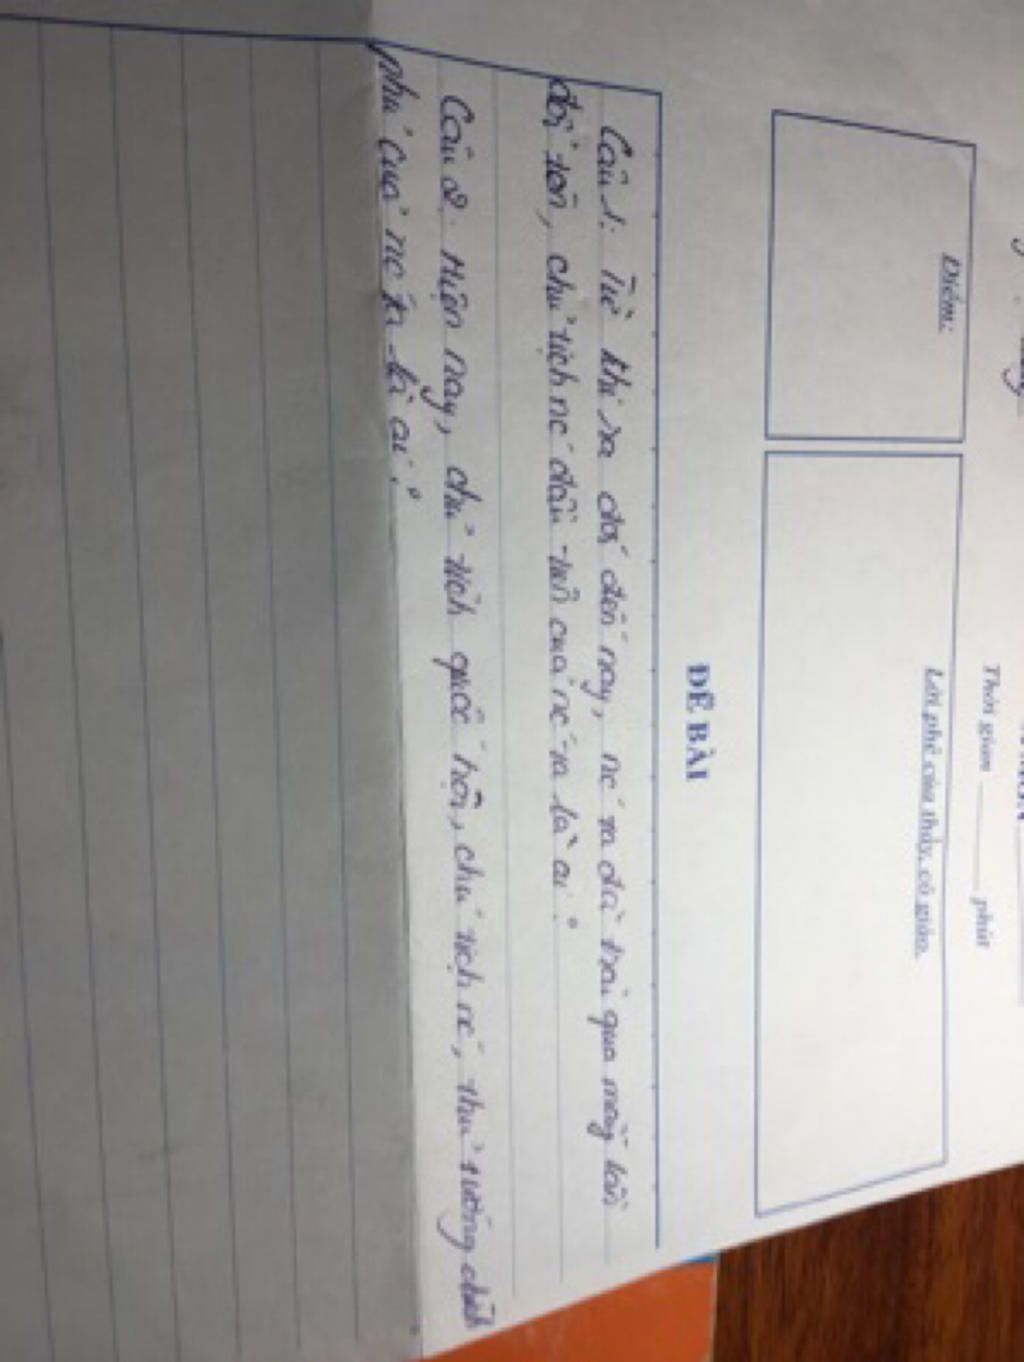 Thời gian ______ phút
Điểm:
Lời phê của thầy, cô giáo.
ĐỀ BÀI
Câu 1: Từ khi ra đời đến nay, nc ta đã trải qua mấy lần
đổi tên, chủ tịch nc đầu tiên của nc ta là ai?
Câu 2. Hiện nay, chủ tịch quốc hội, chủ tịch nc, thủ tướng chính
phủ của nc ta là ai?